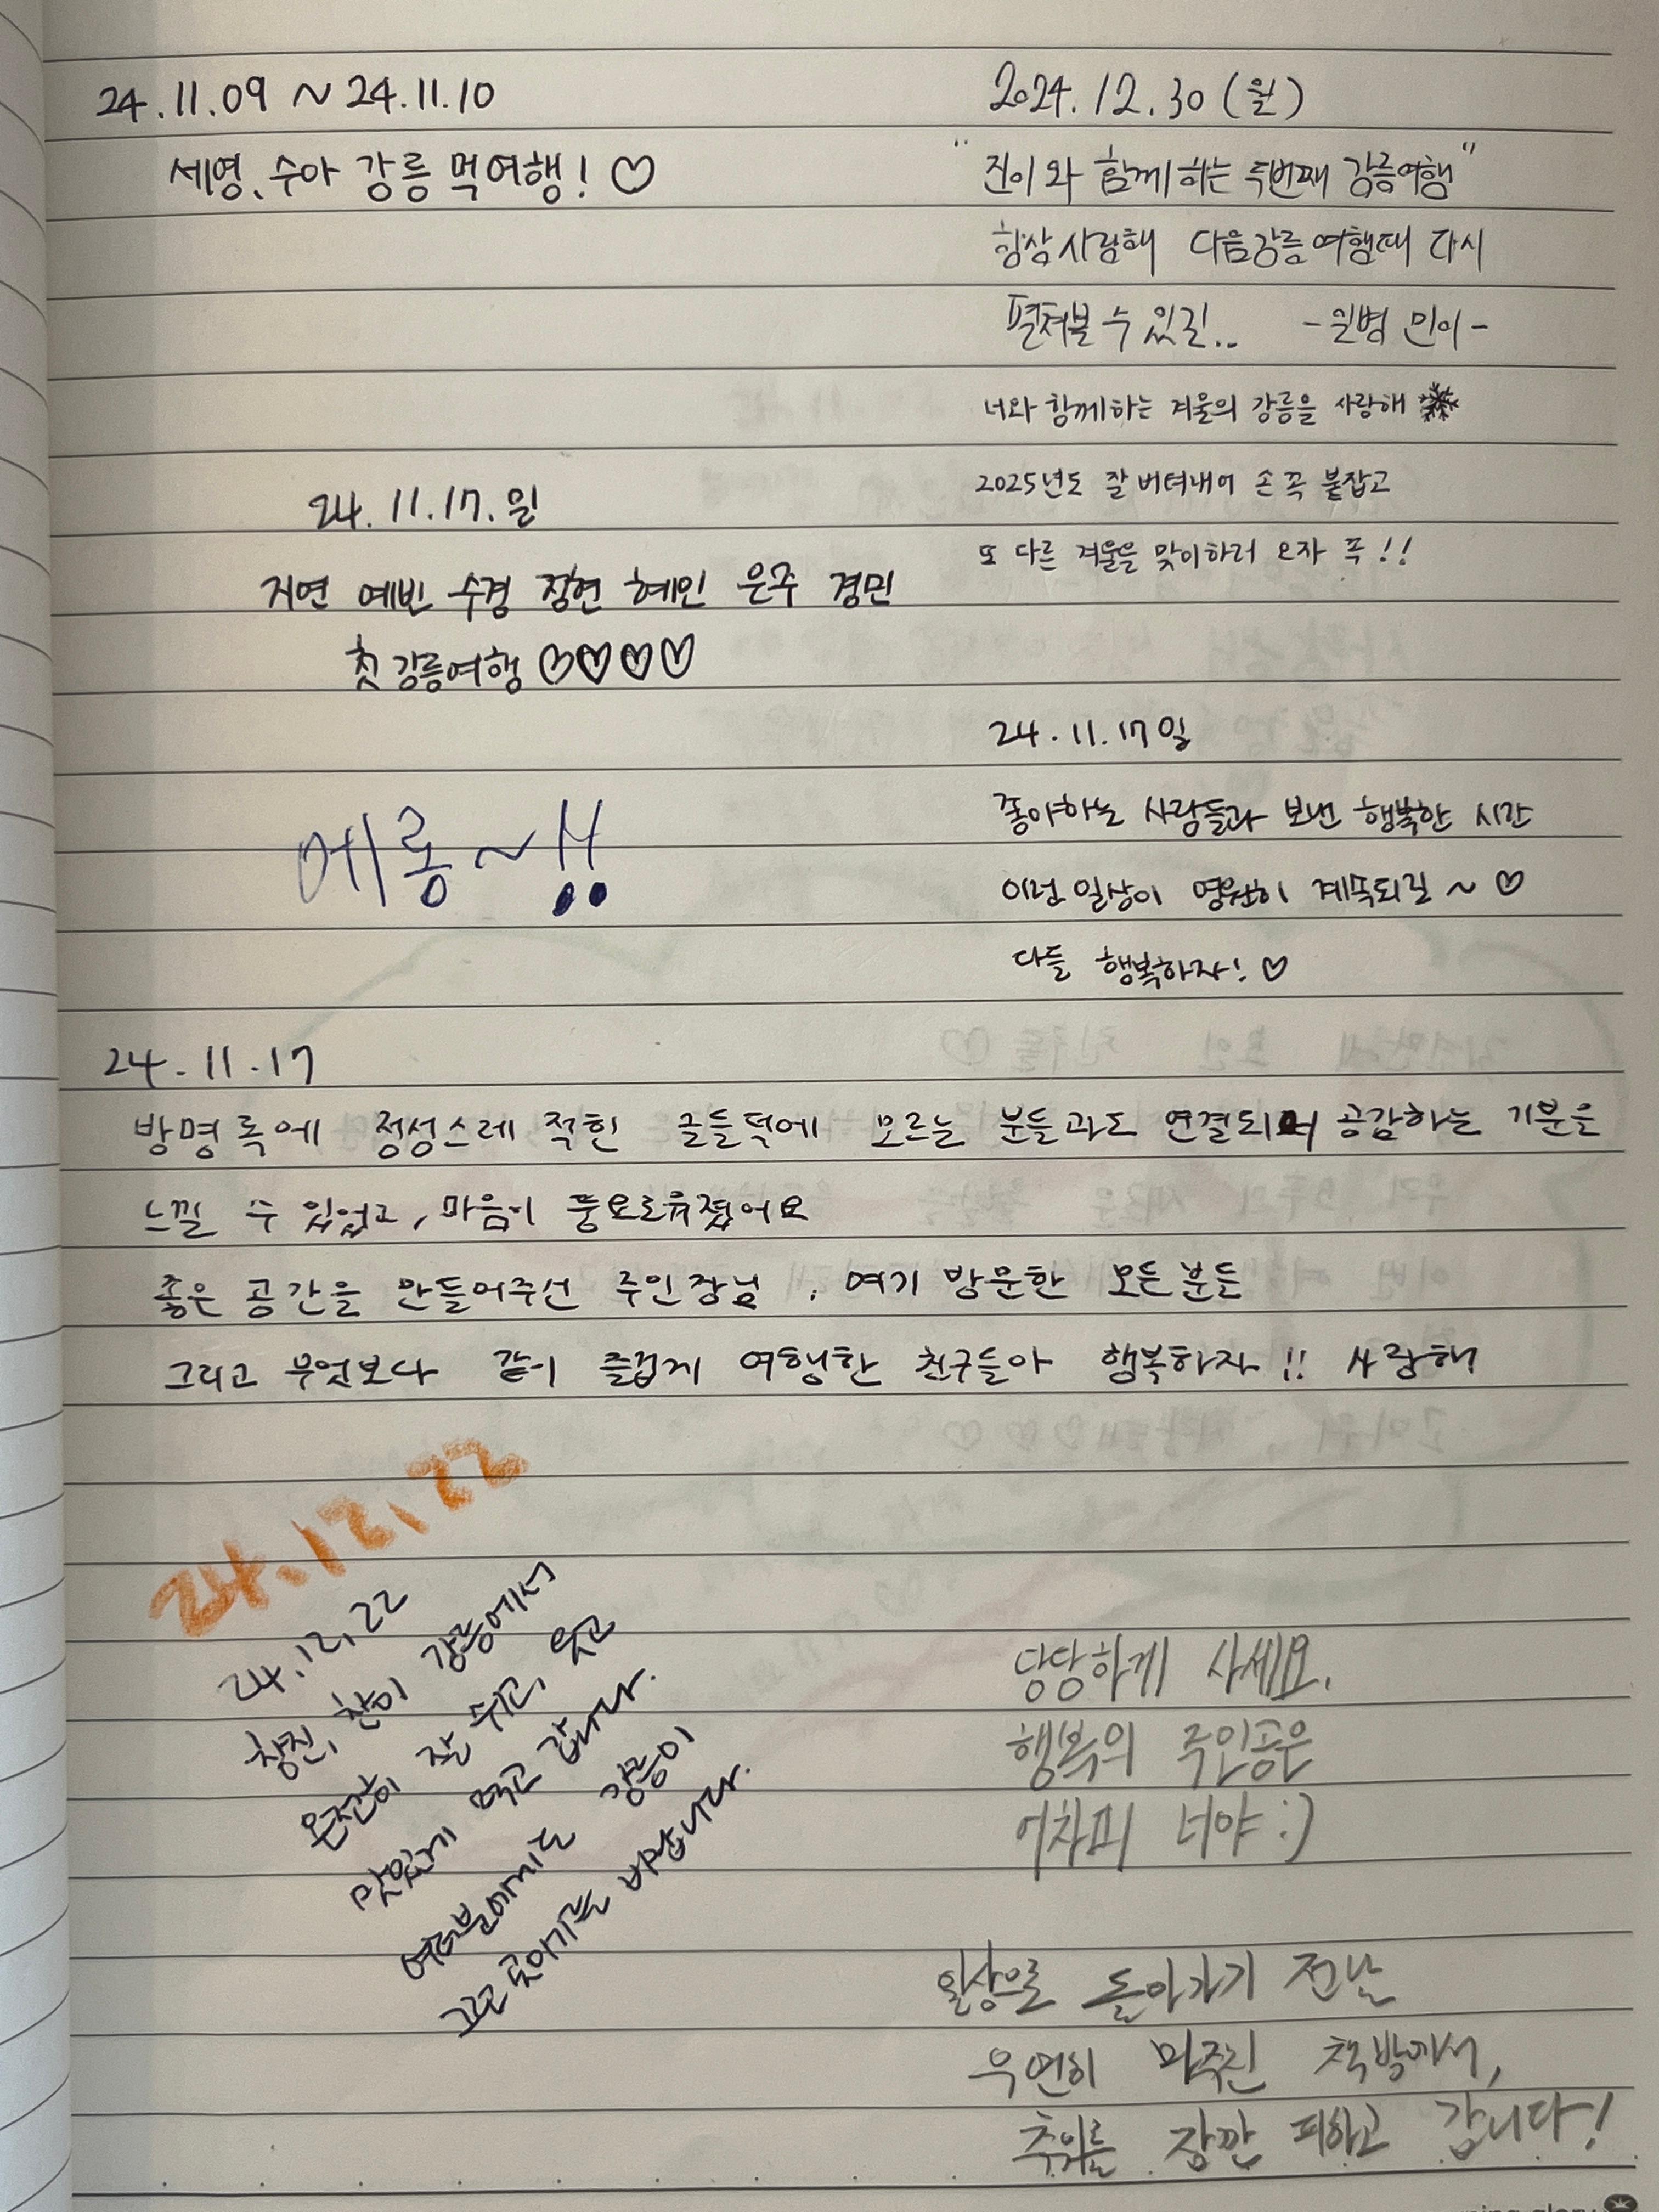 24.11.09 ~ 24.11.10
세영, 수아 강릉 먹여행! ♡
2024.12.30 (월)
"진이와 함께하는 두번째 강릉여행"
항상 사랑해 다음 강릉 여행때 다시
펼쳐볼 수 있길.. -일병 민이-
너와 함께하는 겨울의 강릉을 사랑해
2025년도 잘 버텨내어 손 꼭 붙잡고
또 다른 겨울을 맞이하러 오자 푹!!
24.11.17.일
지연 예빈 수경 정현 혜인 은주 경민
첫 강릉여행 ♡♡♡♡
24.11.17일
좋아하는 사람들과 보낸 행복한 시간
이런 일상이 영원히 계속되길 ~ ♡
다들 행복하자! ♡
에롱~!!
24.11.17
방명록에 정성스레 적힌 글들덕에 모르는 분들과도 연결되어 공감하는 기분을
느낄 수 있었고, 마음이 풍요로워졌어요
좋은 공간을 만들어주신 주인장님, 여기 방문한 모든분들
그리고 무엇보다 같이 즐겁게 여행한 친구들아 행복하자!! 사랑해
24.12.22
24.12.22
창진, 찬이 강릉에서
온전히 잘 쉬고, 웃고
맛있게 먹고 갑니다.
여러분에게도 강릉이
그런 곳이기를 바랍니다.
당당하게 사세요.
행복의 주인공은
어차피 너야 :)
일상으로 돌아가기 전날
우연히 마주친 책방에서,
추위를 잠깐 피하고 갑니다!